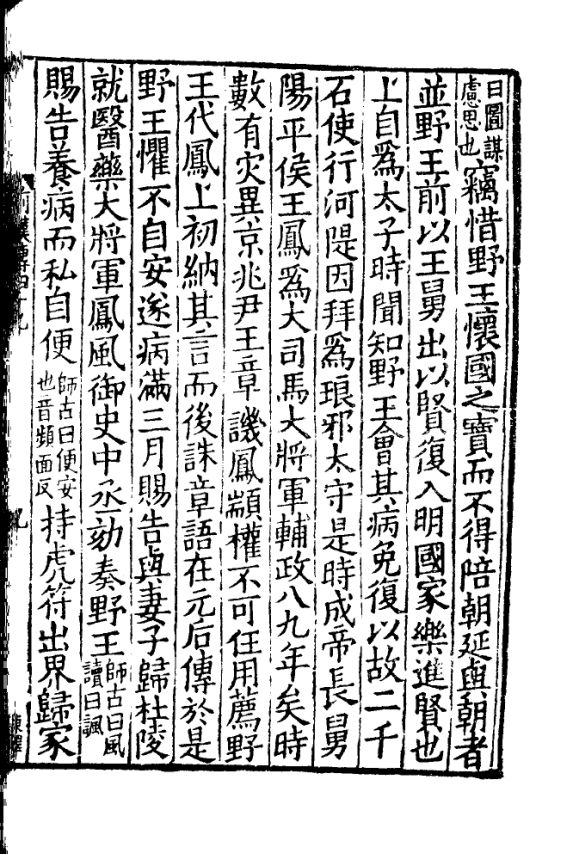 曰圖謀慮思也竊惜野王懷國之寶而不得陪朝廷與朝者
並野王前以王舅出以賢復入明國家樂進賢也
上自爲太子時聞知野王會其病免復以故二千
石使行河隄因拜爲琅邪太守是時成帝長舅
陽平侯王鳳爲大司馬大將軍輔政八九年矣時
數有灾異京兆尹王章譏鳳顓權不可任用薦野
王代鳳上初納其言而後誅章語在元后傳於是
野王懼不自安遂病滿三月賜告與妻子歸杜陵
就醫藥大將軍鳳風御史中丞劾奏野王師古曰風讀曰諷
賜告養病而私自便師古曰便安也音頻面反持虎符出界歸家